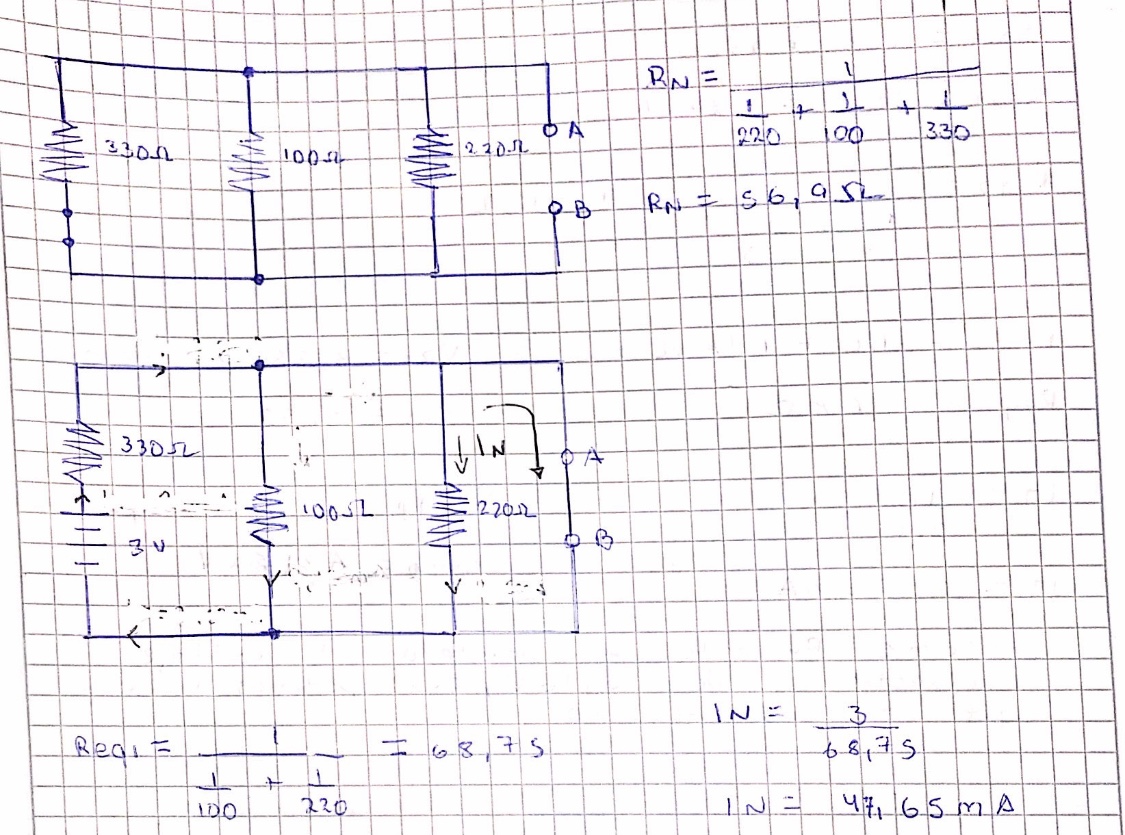 330Ω
100Ω
220Ω
A
B
RN = 1
1/220 + 1/100 + 1/330
RN = 56,9 Ω
330Ω
3V
100Ω
220Ω
IN
A
B
Req1 = 1 = 68,75
1/100 + 1/220
IN = 3/68,75
IN = 47,65 mA